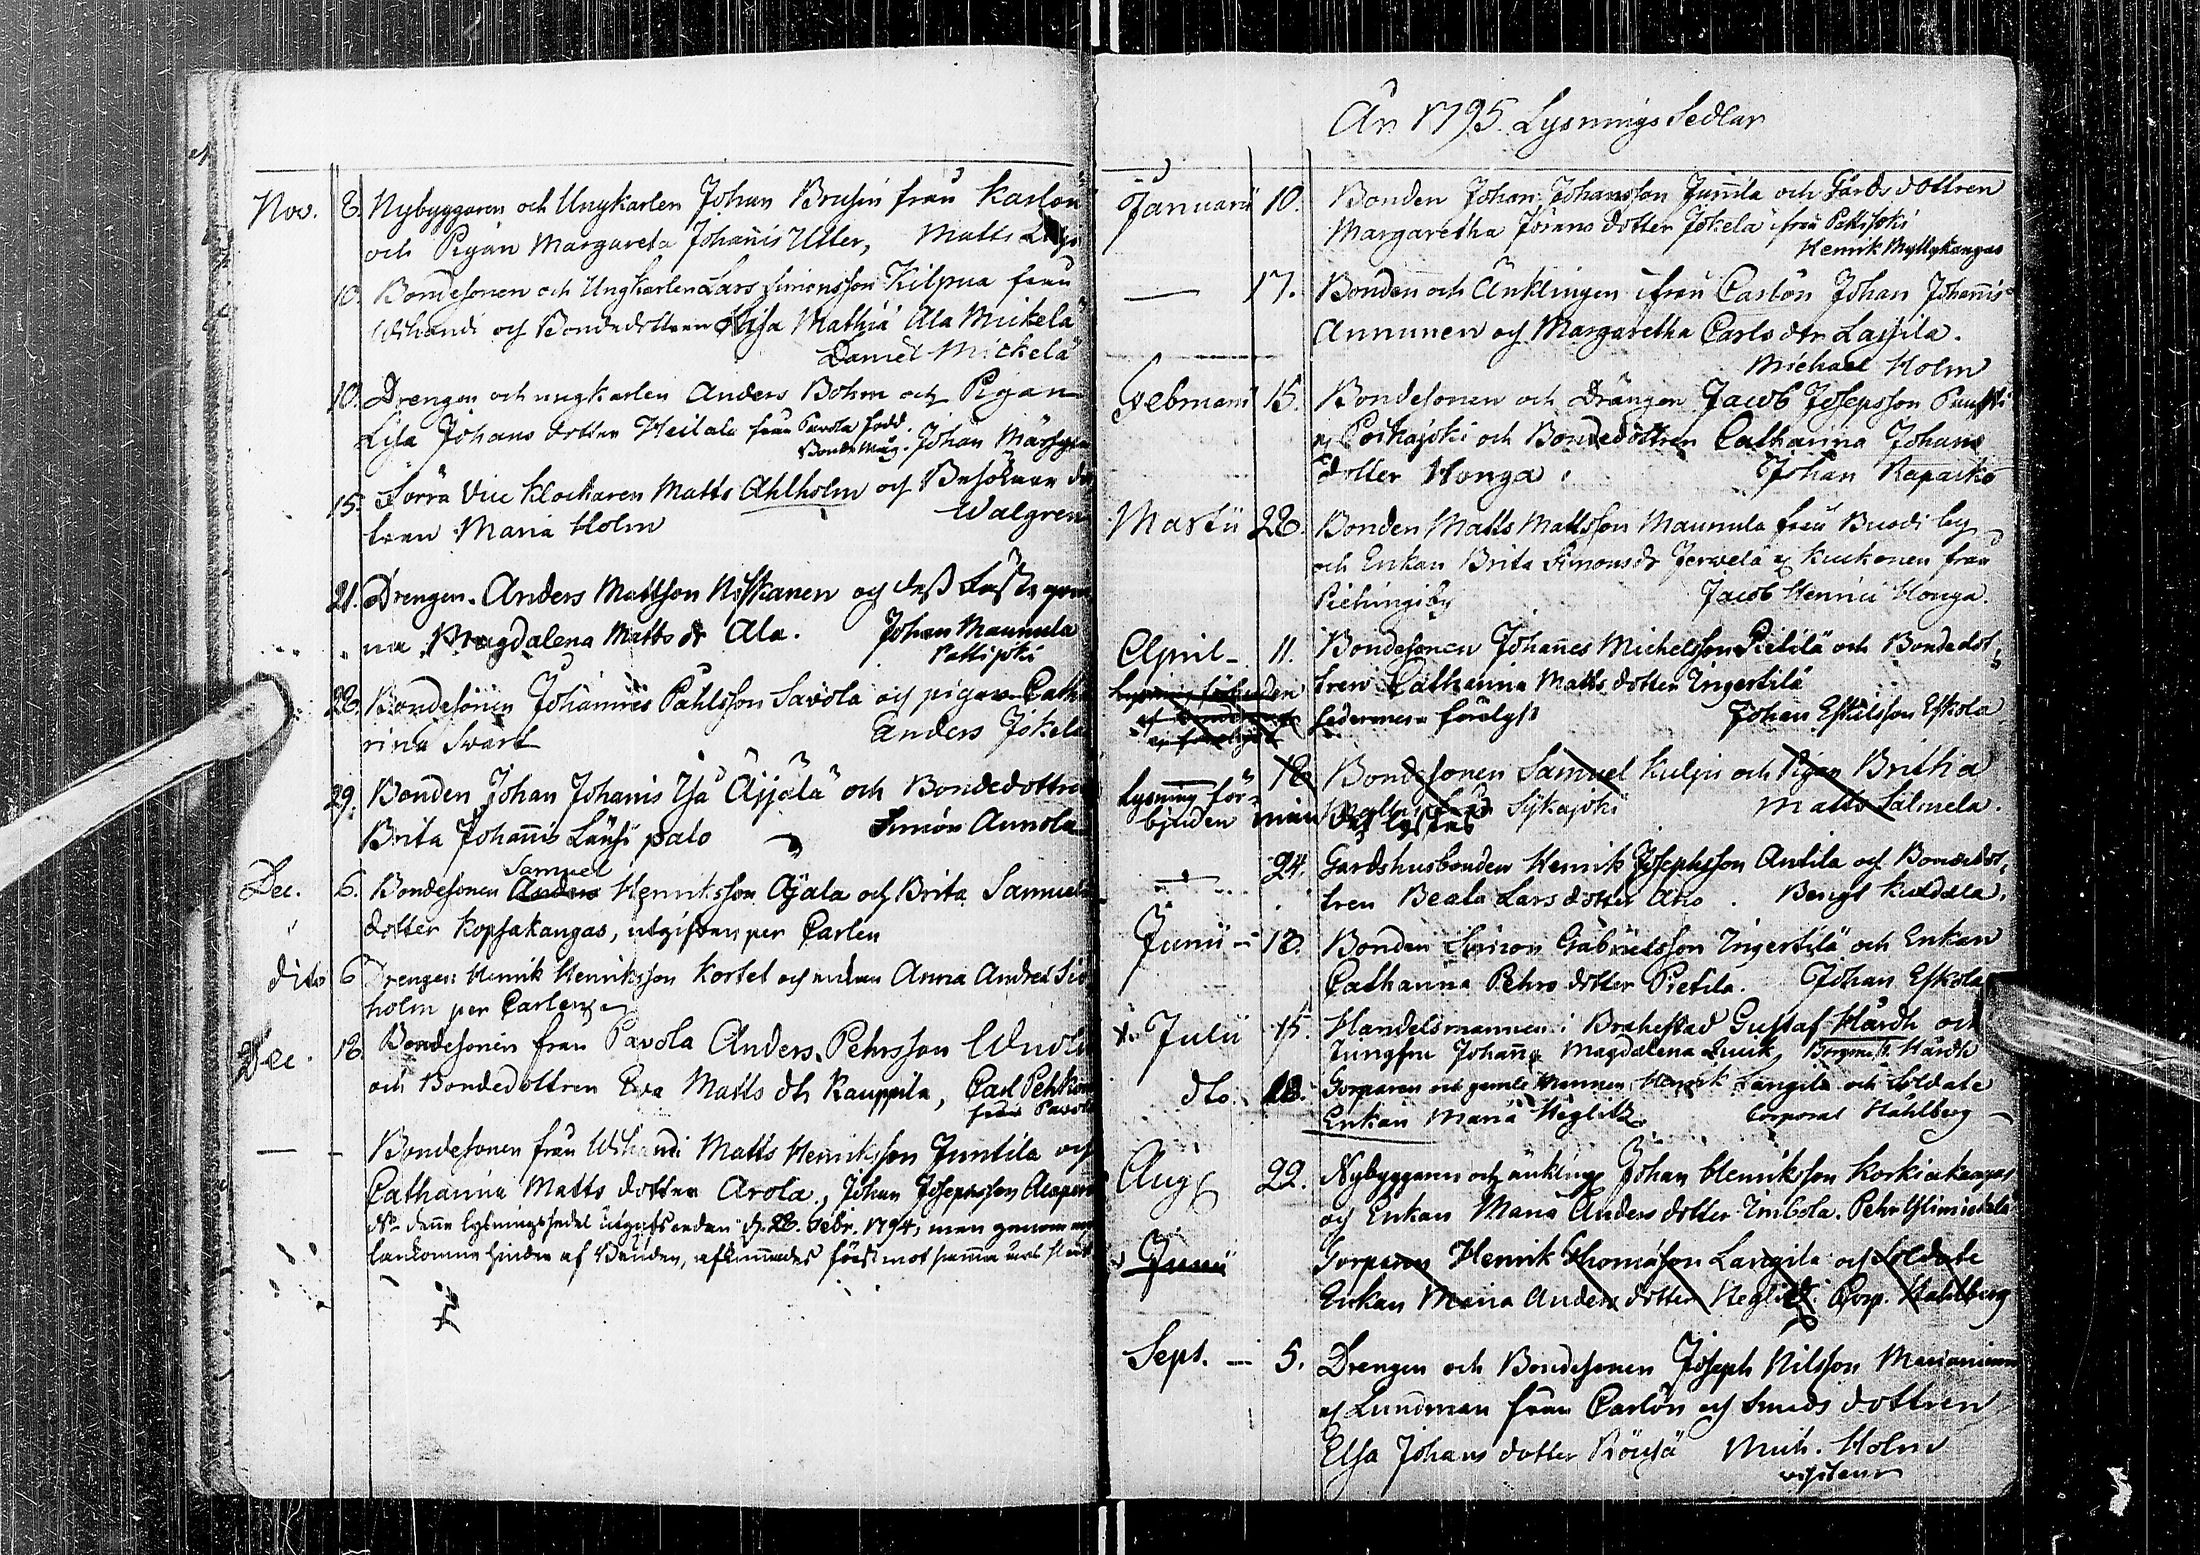 Nov. 8. Nybyggaren och Ungkarlen Johan Brusin från Karlön
och Pigan Margareta Johannis Utter, Matts
10. Bondesonen och Ungkarlen Lars Simonsson Kilpua från
Wihandi och Bondedottren Lisa Mathiæ Ala Mickelä
Daniel Mickelä
10. Drengen och ungkarlen Anders Böhm och Pigan
Lisa Johans dotter Heilala från Pavola född.
Bonde Måg. Johan
15. Förra Vice Klockaren Matts Ahlholm och Besökare dot
tren Maria Holm Walgren
21. Drengen Anders Mattsson Niskanen och dess Fästeqvin
na Magdalena Matts dr Ala. Johan Maunula
Pattijoki
28. Bondesonen Johannes Påhlsson Savola och pigan Catha
rina Svart Anders Jokela
29. Bonden Johan Johanis Yså Äijälä och Bondedottren
Brita Johannis Länsipalo Simon Annola
Samuel
Dec. 6. Bondesonen Anders Henriksson Äjälä och Brita Samuels
dotter Kopsakangas, utgiften per Carlen
dito 6 Drengen Henrik Henriksson Kortet och enkan Anna Andreæ
holm per Carlen
Dec. 18. Bondesonen från Pavola Anders Pehrsson
och Bondedottren Eva Matts dtr Kauppila, Carl Pehkonen
från Pavola
— - Bondesonen från Wihandi Matts Henriksson Juntila och
Catharina Matts dotter Arola, Johan Josephsson Alapere
NB denne lysningssedel utgafs redan d. 28. Febr. 1794, men genom
komne hinder af Bönden, afkunnades först mot samma års slut
År 1795. Lysnings Sedlar
Januarii 10. Bonden Johan Johansson Junnila och Gårds dottren
Margaretha Jörans dotter Jokela ifrån Pattijoki
Henrik Myllykangas
— 17. Bonden och Änklingen ifrån Carlön Johan Johannis
Annunen och Margaretha Carls dtr Lassila.
Michael Holm
Februarii 15. Bondesonen och Drängen Jacob Josepsson
ej Poikajoki och Bondedottren Catharina Johans
dotter Honga. Johan Rapacko
Martii 28. Bonden Matts Mattsson Maunula från Buodi by
och Enkan Brita Simons dr Jerwelä ej Kuckonen från
Piehingi by Jacob Henrici Honga.
April - 11. Bondesonen Johannes Michelsson Pietilä och Bondedot,
tren Catharina Matts dotter Ingertilä
sedermera förelyst Johan Eskilsson Eskola
18 Bondesonen Samuel Kulju och Pigan Britha
Lysning för-
bjuden Sikajoki Matts Salmela.
— 24. Gårdshusbonden Henrik Josephsson Antila och Bondedot,
tren Beata Lars dotter Aho. Bengt
Junii - 18. Bonden Simon Gabrielsson Ingertilä och Enkan
Catharina Pehrs dotter Pietila. Johan Eskola
Julii 15. Handelsmannen i Brahestad Gustaf Hårdh och
Jungfru Johanna Magdalena Borgm. Hårdh
dto. 18. Sorparen och gamle Mannen Henrik Langila och Soldate
Enkan Maria Heglitz. Corporal Hahlberg
Aug 22. Nybyggaren och änkling Johan Henriksson Korkiakangas
och Enkan Maria Anders dotter Imbola. Pehr Ylimickelä
Junii Sorparen Henrik Thomasson Langila och Soldate
Enkan Maria Anders dotter Heglitz. Corp. Hahlberg
Sept. — 5. Drengen och Bondesonen Joseph Nilsson
ej Lundman från Carlön och Smeds dottren
Elsa Johans dotter Rönsä Mich. Holm
visiteur